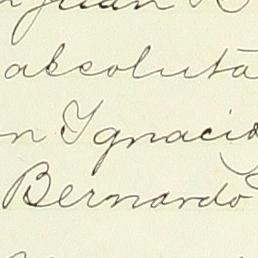 Juan R
absoluta
n Ignacio
Bernardo